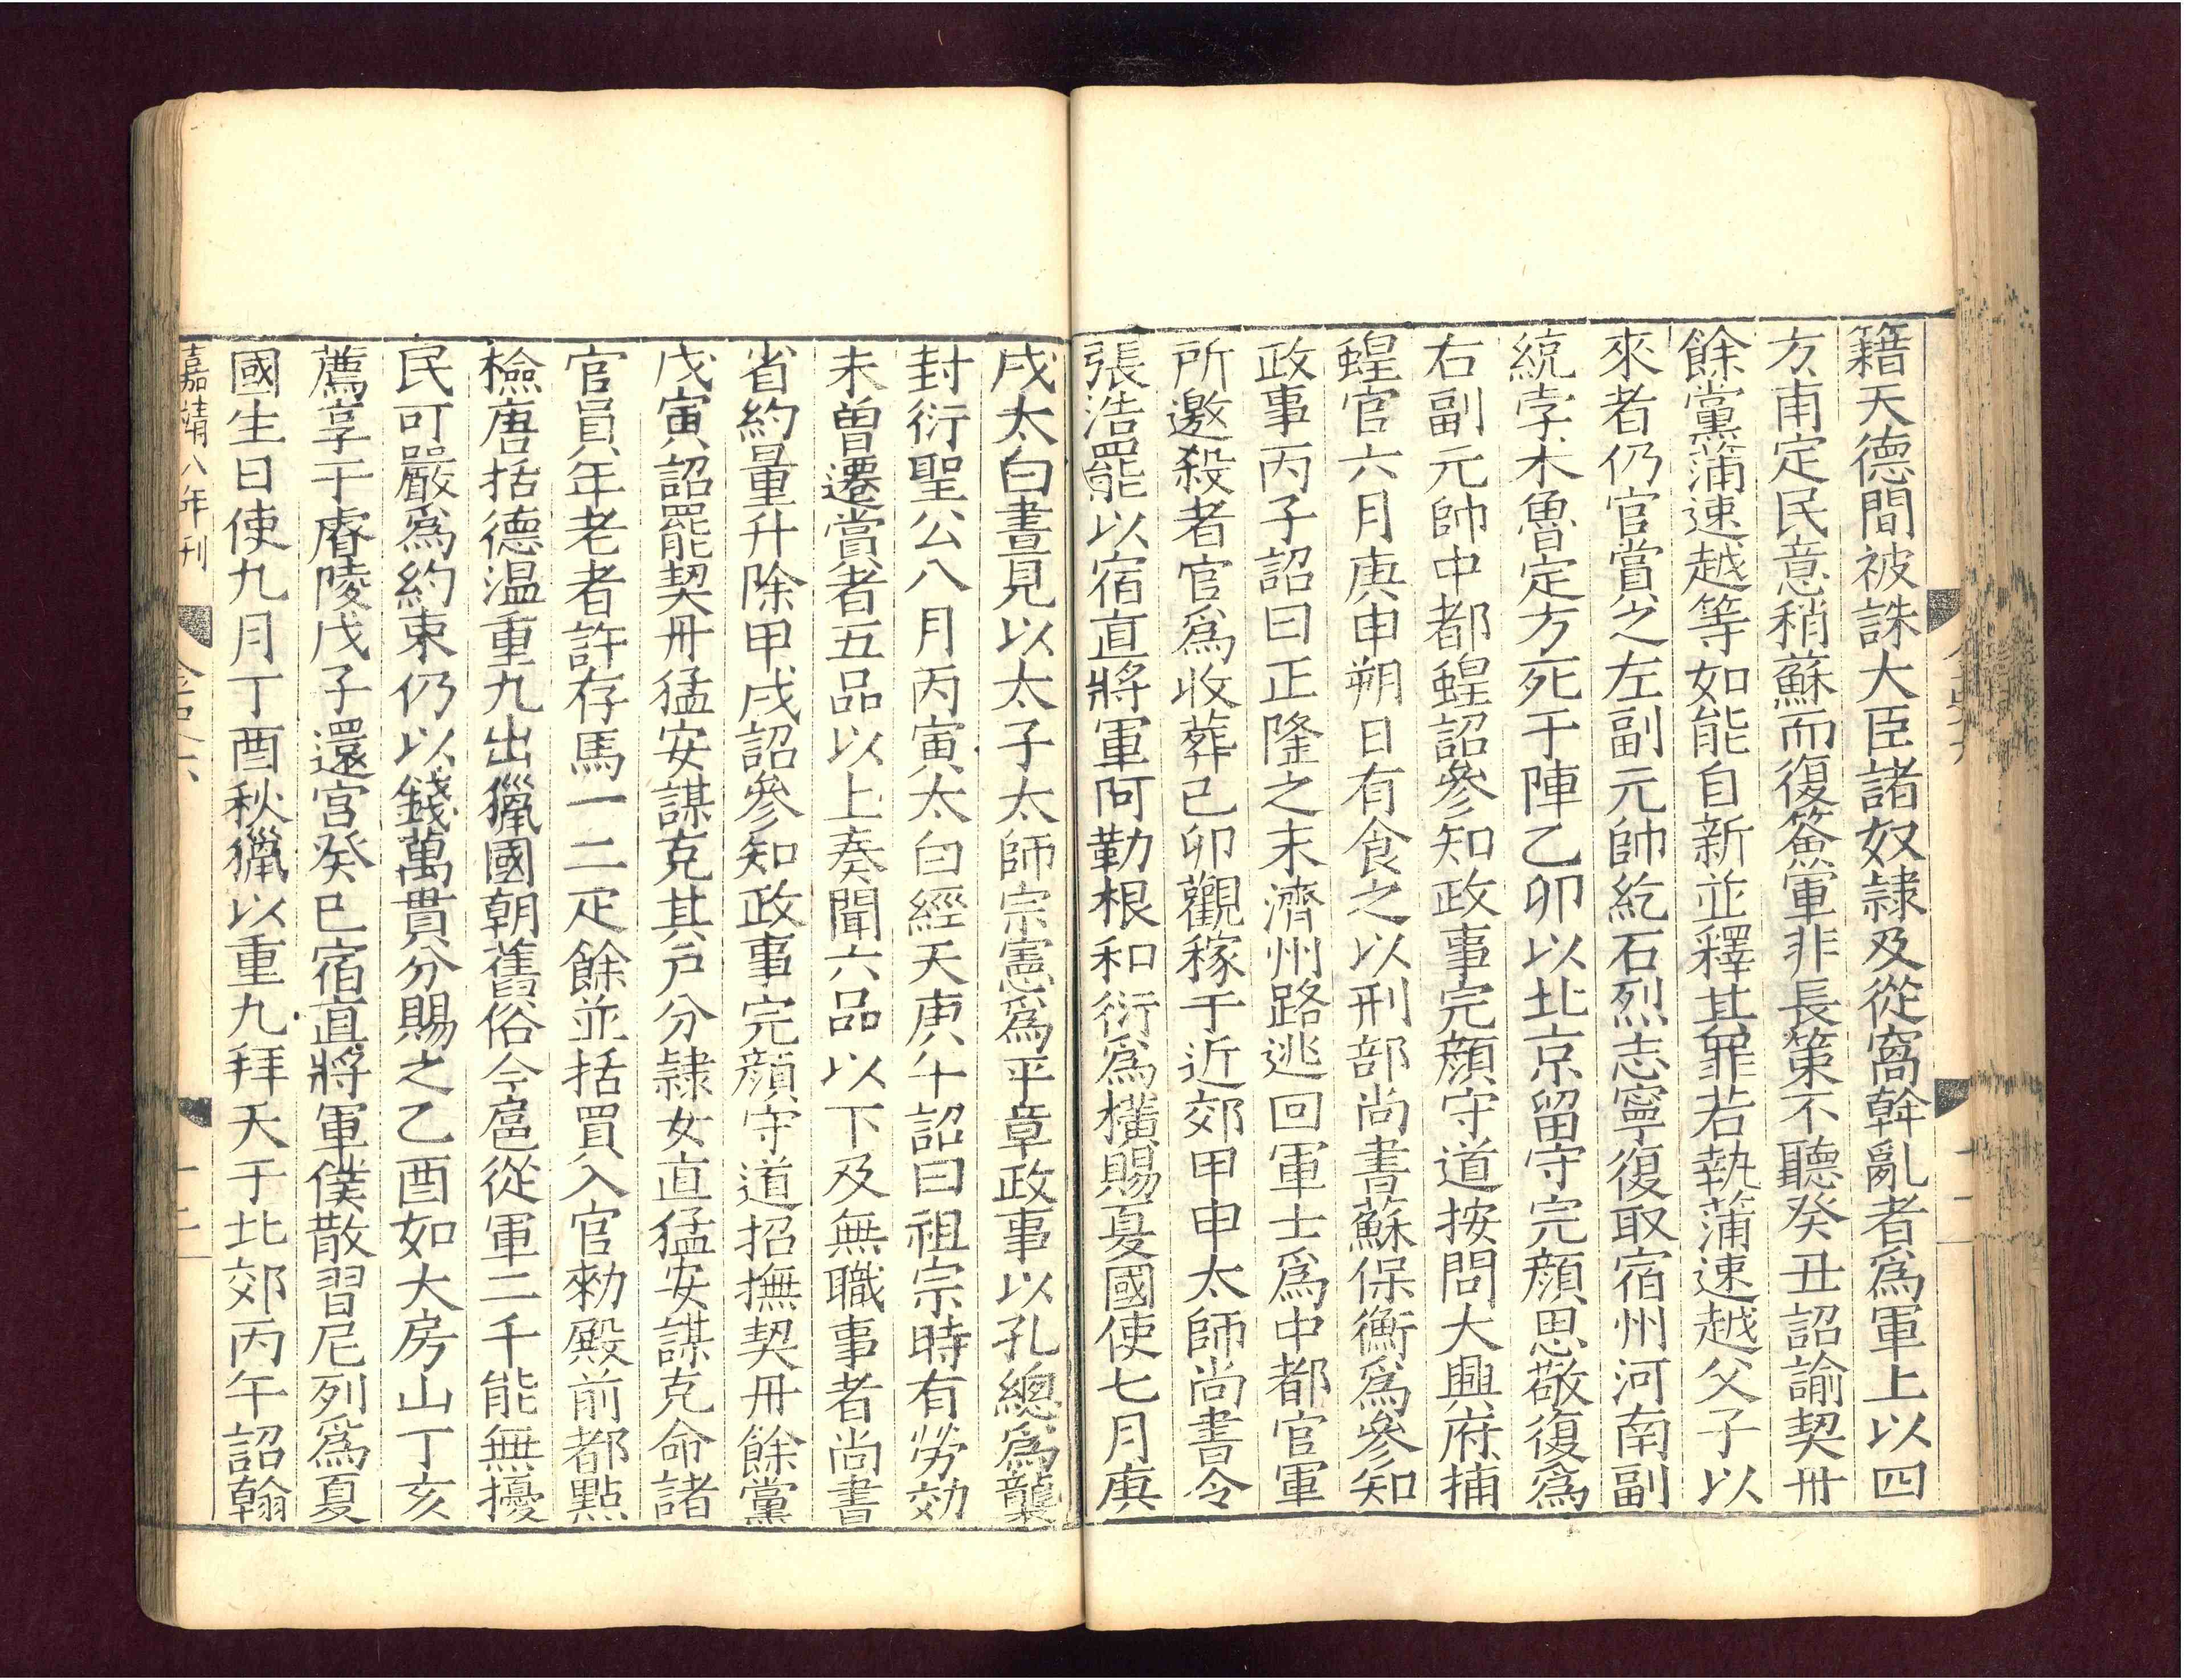 籍天德間被誅大臣諸奴隸及從窩斡亂者爲軍上以四
方南定民意稍蘇而復簽軍非長策不聽癸丑詔諭契丹
餘黨蒲速越等如能自新並釋其罪若執蒲速越父子以
來者仍官賞之左副元帥紇石烈志寧復取宿州河南副
統孛术魯定方死于陣乙卯以北京留守完顏思敬復爲
右副元帥中都蝗詔參知政事完顏守道按問大興府捕
蝗官六月庚申朔日有食之以刑部尚書蘇保衡爲參知
政事丙子詔曰正隆之末濟州路逃回軍士爲中都官軍
所邀殺者官爲收葬己卯觀稼于近郊甲申太師尚書令
張浩罷以宿直將軍阿勒根和衍爲橫賜夏國使七月庚
戌太白晝見以太子太師宗憲爲平章政事以孔總爲襲
封衍聖公八月丙寅太白經天庚午詔曰祖宗時有勞效
未曾遷賞者五品以上奏聞六品以下及無職事者尚書
省約量升除甲戌詔參知政事完顏守道招撫契丹餘黨
戊寅詔罷契丹猛安謀克其戶分隸女直猛安謀克命諸
官員年老者許存馬一二疋餘並括買入官勑殿前都點
檢唐括德温重九出獵國朝舊俗今扈從軍二千能無擾
民可嚴爲約束仍以錢萬貫分賜之乙酉如大房山丁亥
薦享于睿陵戊子還宮癸巳宿直將軍僕散習尼列爲夏
國生日使九月丁酉秋獵以重九拜天于北郊丙午詔翰
嘉靖八年刊
金史六
十二